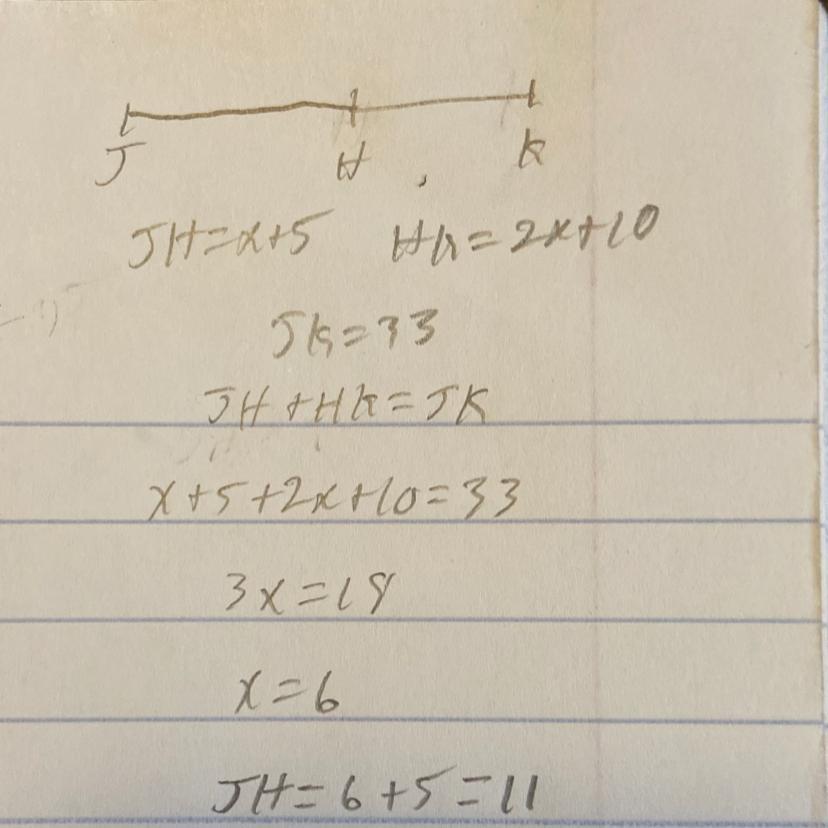 J H K
JH=x+5 HK=2x+10
JK=33
JH+HK=JK
x+5+2x+10=33
3x=18
x=6
JH=6+5=11